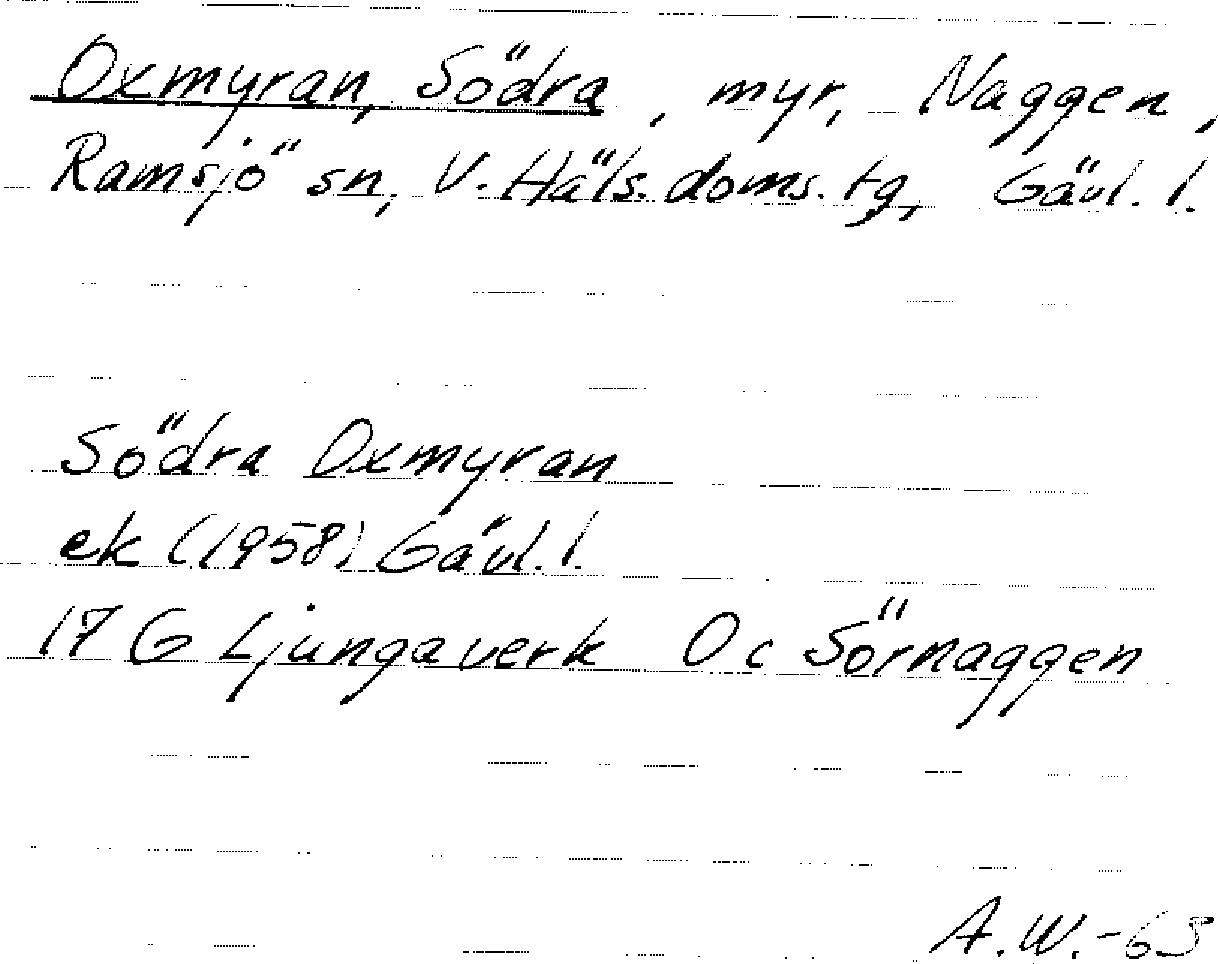 Oxmyran, Södra, myr, Naggen,
Ramsjö sn, V. Häls. doms. tg, Gävl. l.
Södra Oxmyran
ek (1958) Gävl. l.
17 G Ljungaverk 0 c Sörnaggen
A.W.-65